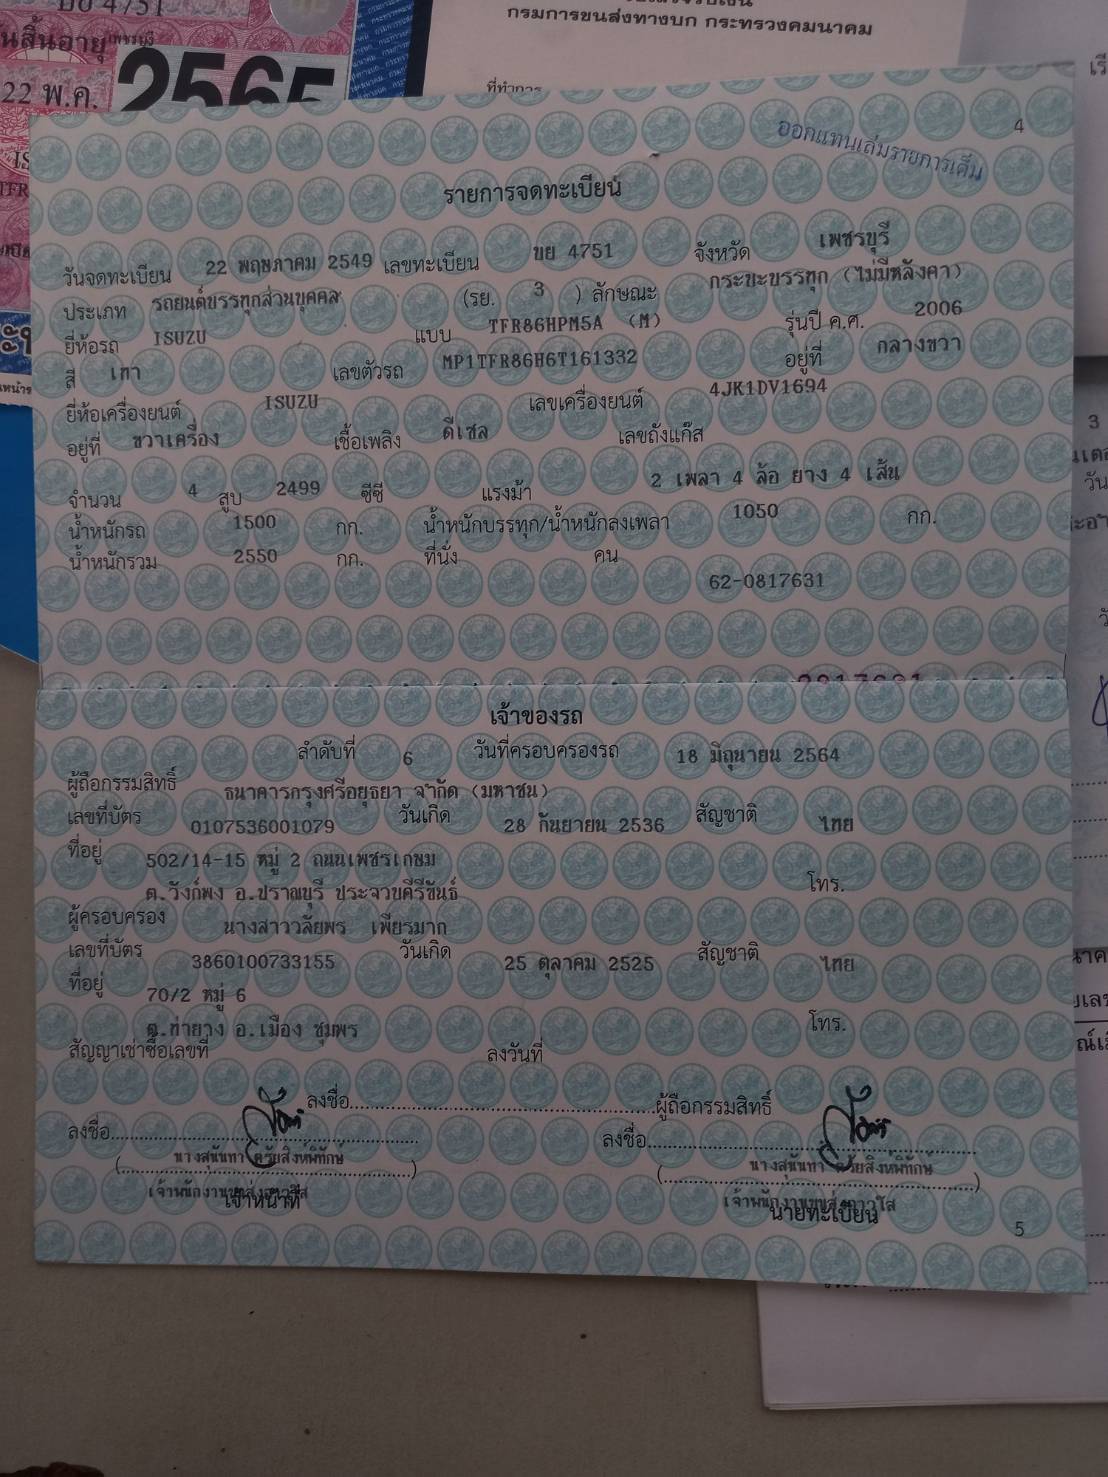 บย 4751
นสิ้นอายุ เพชรบุรี
22 พ.ค. 2565
กรมการขนส่งทางบก กระทรวงคมนาคม
ที่ทำการ
4
ออกแทนเล่มรายการเต็ม
รายการจดทะเบียน
วันจดทะเบียน 22 พฤษภาคม 2549 เลขทะเบียน บย 4751 จังหวัด เพชรบุรี
ประเภท รถยนต์บรรทุกส่วนบุคคล (รย. 3 ) ลักษณะ กระบะบรรทุก (ไม่มีหลังคา)
ยี่ห้อรถ ISUZU แบบ TFR86HPM5A (M) รุ่นปี ค.ศ. 2006
สี เทา เลขตัวรถ MP1TFR86H6T161332 อยู่ที่ กลางขวา
ยี่ห้อเครื่องยนต์ ISUZU เลขเครื่องยนต์ 4JK1DV1694
อยู่ที่ ขวาเครื่อง เชื้อเพลิง ดีเซล เลขถังแก๊ส
จำนวน 4 สูบ 2499 ซีซี แรงม้า 2 เพลา 4 ล้อ ยาง 4 เส้น
น้ำหนักรถ 1500 กก. น้ำหนักบรรทุก/น้ำหนักลงเพลา 1050 กก.
น้ำหนักรวม 2550 กก. ที่นั่ง คน
62-0817631
เจ้าของรถ
ลำดับที่ 6 วันที่ครอบครองรถ 18 มิถุนายน 2564
ผู้ถือกรรมสิทธิ์ ธนาคารกรุงศรีอยุธยา จำกัด (มหาชน)
เลขที่บัตร 0107536001079 วันเกิด 28 กันยายน 2536 สัญชาติ ไทย
ที่อยู่ 502/14-15 หมู่ 2 ถนนเพชรเกษม
ต.วังก์พง อ.ปราณบุรี ประจวบคีรีขันธ์ โทร.
ผู้ครอบครอง นางสาววลัยพร เพียรมาก
เลขที่บัตร 3860100733155 วันเกิด 25 ตุลาคม 2525 สัญชาติ ไทย
ที่อยู่ 70/2 หมู่ 6
ต.ท่ายาง อ.เมือง ชุมพร โทร.
สัญญาเช่าซื้อเลขที่ ลงวันที่
ลงชื่อ ผู้ถือกรรมสิทธิ์
ลงชื่อ ลงชื่อ
เจ้าหน้าที่ นายทะเบียน
5